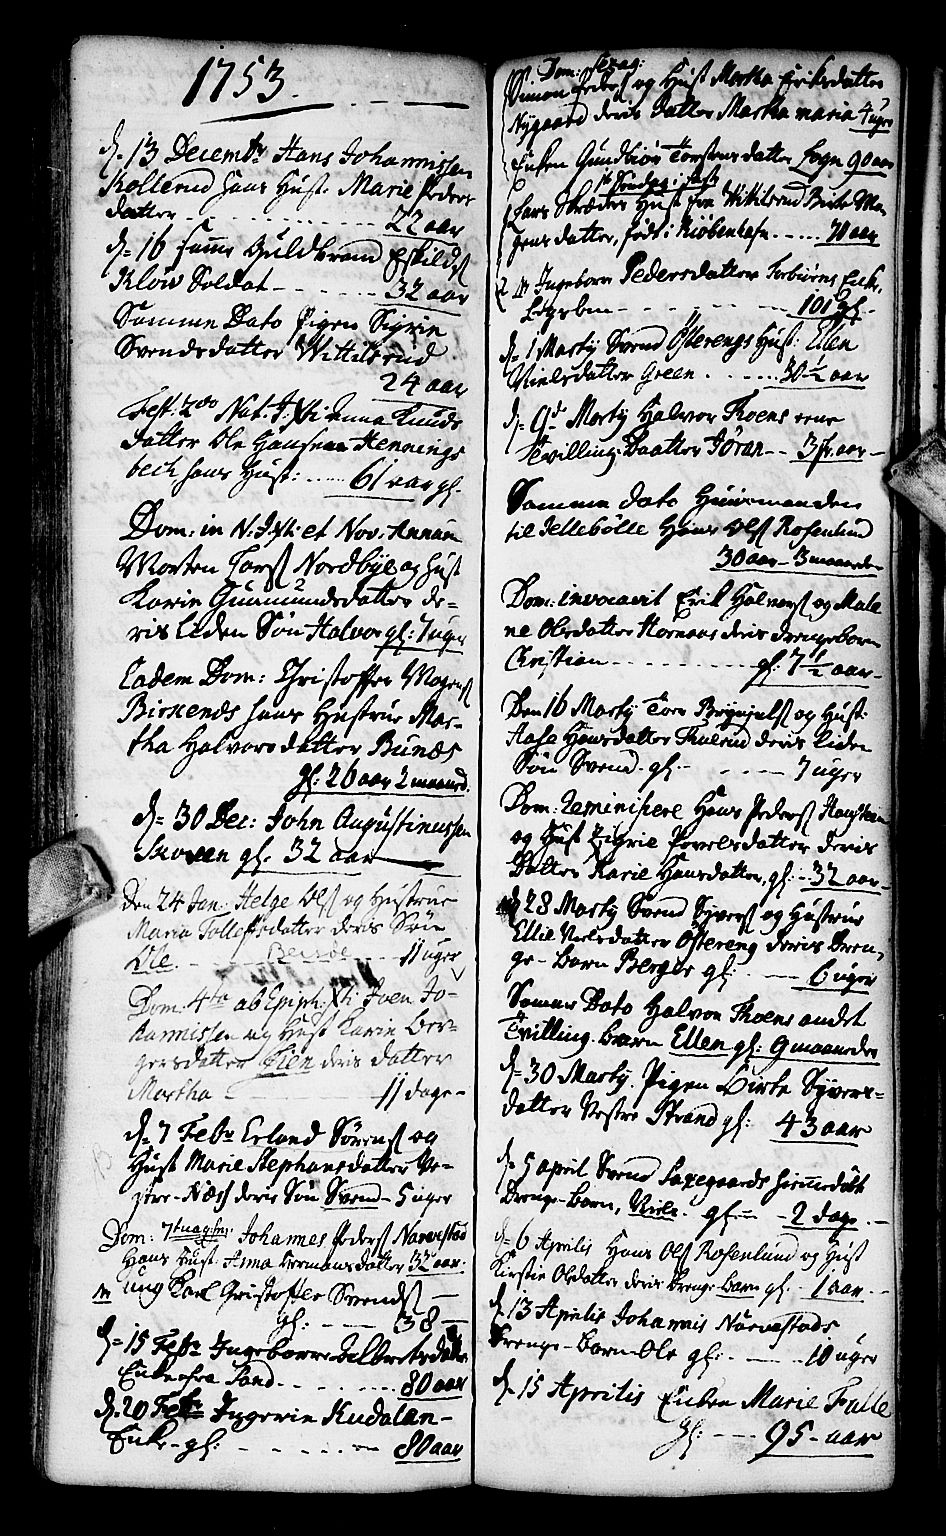 1753.
d. 13 Decembr Hans Johannissen
Kollerud hans Hust. Marie Peders
datter - - - 22 aar
d. 16 samme Guldbrand Eskilds
Kløw Soldat - - - 32 aar
Samme Dato Pigen Sigrin
Svendsdatter Wittilsrud
24 aar
Fest: 2do Nat. Xti Anna Knuds
datter Ole Hansen Hennings
bech hans Hust: ..... 61 aar gl.
Dom: in N: et Nov. Annum
Morten Lars. Nordbye og Hust
Karin Gunmundsdatter de=
ris liden Søn Halvor gl: 7 uger
Eadem Dom: Christoffer Mogens
Birkends hans Hustrue Mar=
tha Halvorsdatter Bunæs
gl: 26 aar 2 maaned.
d= 30 Dec: John Augustinussen
Skoven gl. 32 aar
Den 24 Jan: Helge Ols. og Hustrue
Maria Tollefsdatter deris Søn
Ole. - - 11 uger
Dom. 4ta ab Epiph. Xti Joen Jo-
hannissen og Hust Karin Ber-
gersdatter deris datter
Martha - - 11 dage -
d= 7 Febr Erland Sørens. og
Hust Marie Stephansdatter Ve-
ster-Næss deris Søn Svend - 5 uger
Dom: 7tuag: Johannes Peders. Narvestad
hans Hust. Anna Hermansdatter 32 aar.
ung Karl Christoffer Svends. -
gl: - - - 38 -
d= 15 Febr Ingeborre datter
Enke fra Sand - - - 80 aar
d. 20 Febr Ingerin Kudalen-
Enke - gl: - - - 80 aar
Dom: Sexag:
Simon Peders. og Hust Martha Eriksdatter
Nygaard deris datter Martha maria 4 uger
Enken Gundbiør Torstensdatter Sogn 90 aar
1te Søndag i faste
Lars Skræders Hust fra Wittilsrud Birte Mo-
gensdatter, født i Kiøbenhafn. .... 70 aar
Ingeborn Pedersdatter Torbiørns Enke,
- - - 101 gl.
d= 1 Martij Svend Østerengs Hust: Ellen
Nielsdatter Green. ..... 30 1/2 aar
d. 9d Martij Halvor Thoens eene
Tvilling-Daatter Jøran - - 3/4 aar -
Samme dato Huusmanden
til Tellebølle Hans Ols. Rosenlund
30 aar - 3 maaneder
Dom: invocavit Erik Halvors. og Male
ne Olsdatter Hornaas deris drengebarn
Christian - - - gl: 7 1/2 aar -
Den 16 Martij Tore Brynjuls. og Hust:
Aase Hansdatter Thuerud deris liden
Søn Svend. gl. - - - 7 uger
Dom: Reminiscere Hans Peders.
og Hust Sigrie Povelsdatter deris
Datter Karie Hansdatter, gl: - 32 aar -
d 28 Martij Svend Syvers. og Hustrue
Ellie Nielsdatter Østereng deris Dren-
ge-Barn Berger gl: - - 6 uger
Samme Dato Halvor Thoens andet
Tvilling-Barn Ellen gl: 9 maaneder
d= 30 Martij. Pigen Birte Syvers=
datter Vestre Strand gl: 43 aar
d= 5 april Svend Saxegaards hiemmedøbt
Drenge-Barn, Niels. gl= - 2 dage. -
d= 6 Aprilis Hans Ols. Rosenlund og Hust
Kirstie Olsdatter deris Drenge-Barn gl. - 1 aar. -
d. 13 Aprilis Johannis Narvestads
Drenge-Barn Ole gl: - - 10 uger
d. 15 Aprilis Enken Marie Falle
gl: - - - 95 - aar